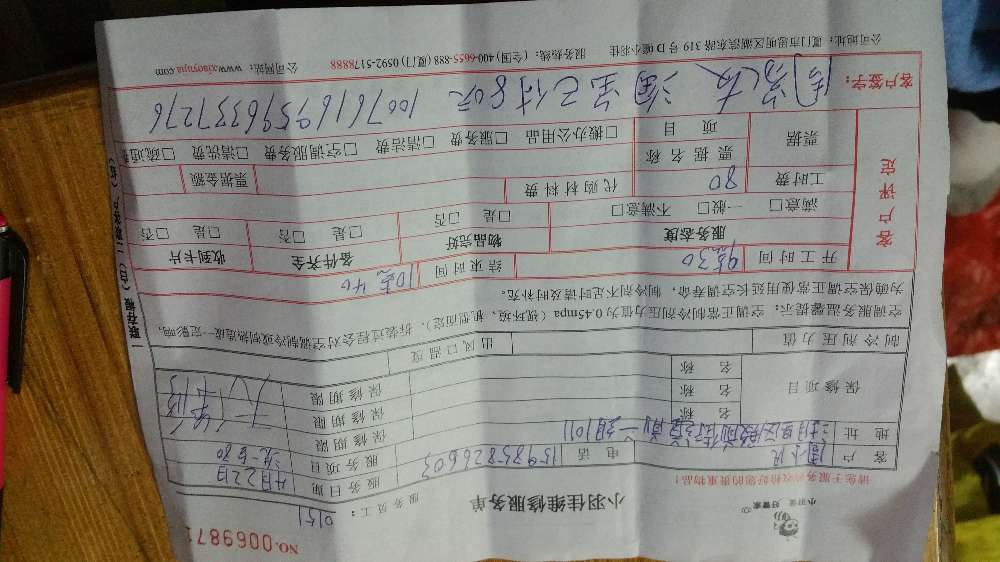 小羽佳 好管家
NO.0069871
小羽佳维修服务单
服务员工： 0151
请您于服务前收拾好您的贵重物品！
客户 电话 15985826603 服务日期 4月22日
地址 服务项目
保修项目 名称 保修期限
名称 保修期限
名称 保修期限
制冷剂压力值 出风口温度
空调服务温馨提示：空调正常制冷剂压力值为0.45mpa（视环境、机型而定），拆装过程会对空调制冷或制热造成一定影响，
为确保空调正常使用延长空调寿命，制冷剂不足时请及时补充。
客户评定
开工时间 9点30 结束时间 10点40
服务态度 物品完好 备件齐全 收到卡片
满意□ 一般□ 不满意□ □是 □否 □是 □否 □是 □否
工时费 80 代购材料费
票据 票据名称 票据金额
项目 □搬办公用品 □服务费 □清洁费 □空调服务费 □清洗费 □疏通费
客户签字： 淘宝已付80元 1007616959637276
公司地址：厦门市思明区湖滨东路319号D幢小羽佳 服务热线：(全国) 400-6655-888 (厦门) 0592-5178888 公司网站：www.xiaoyujia.com